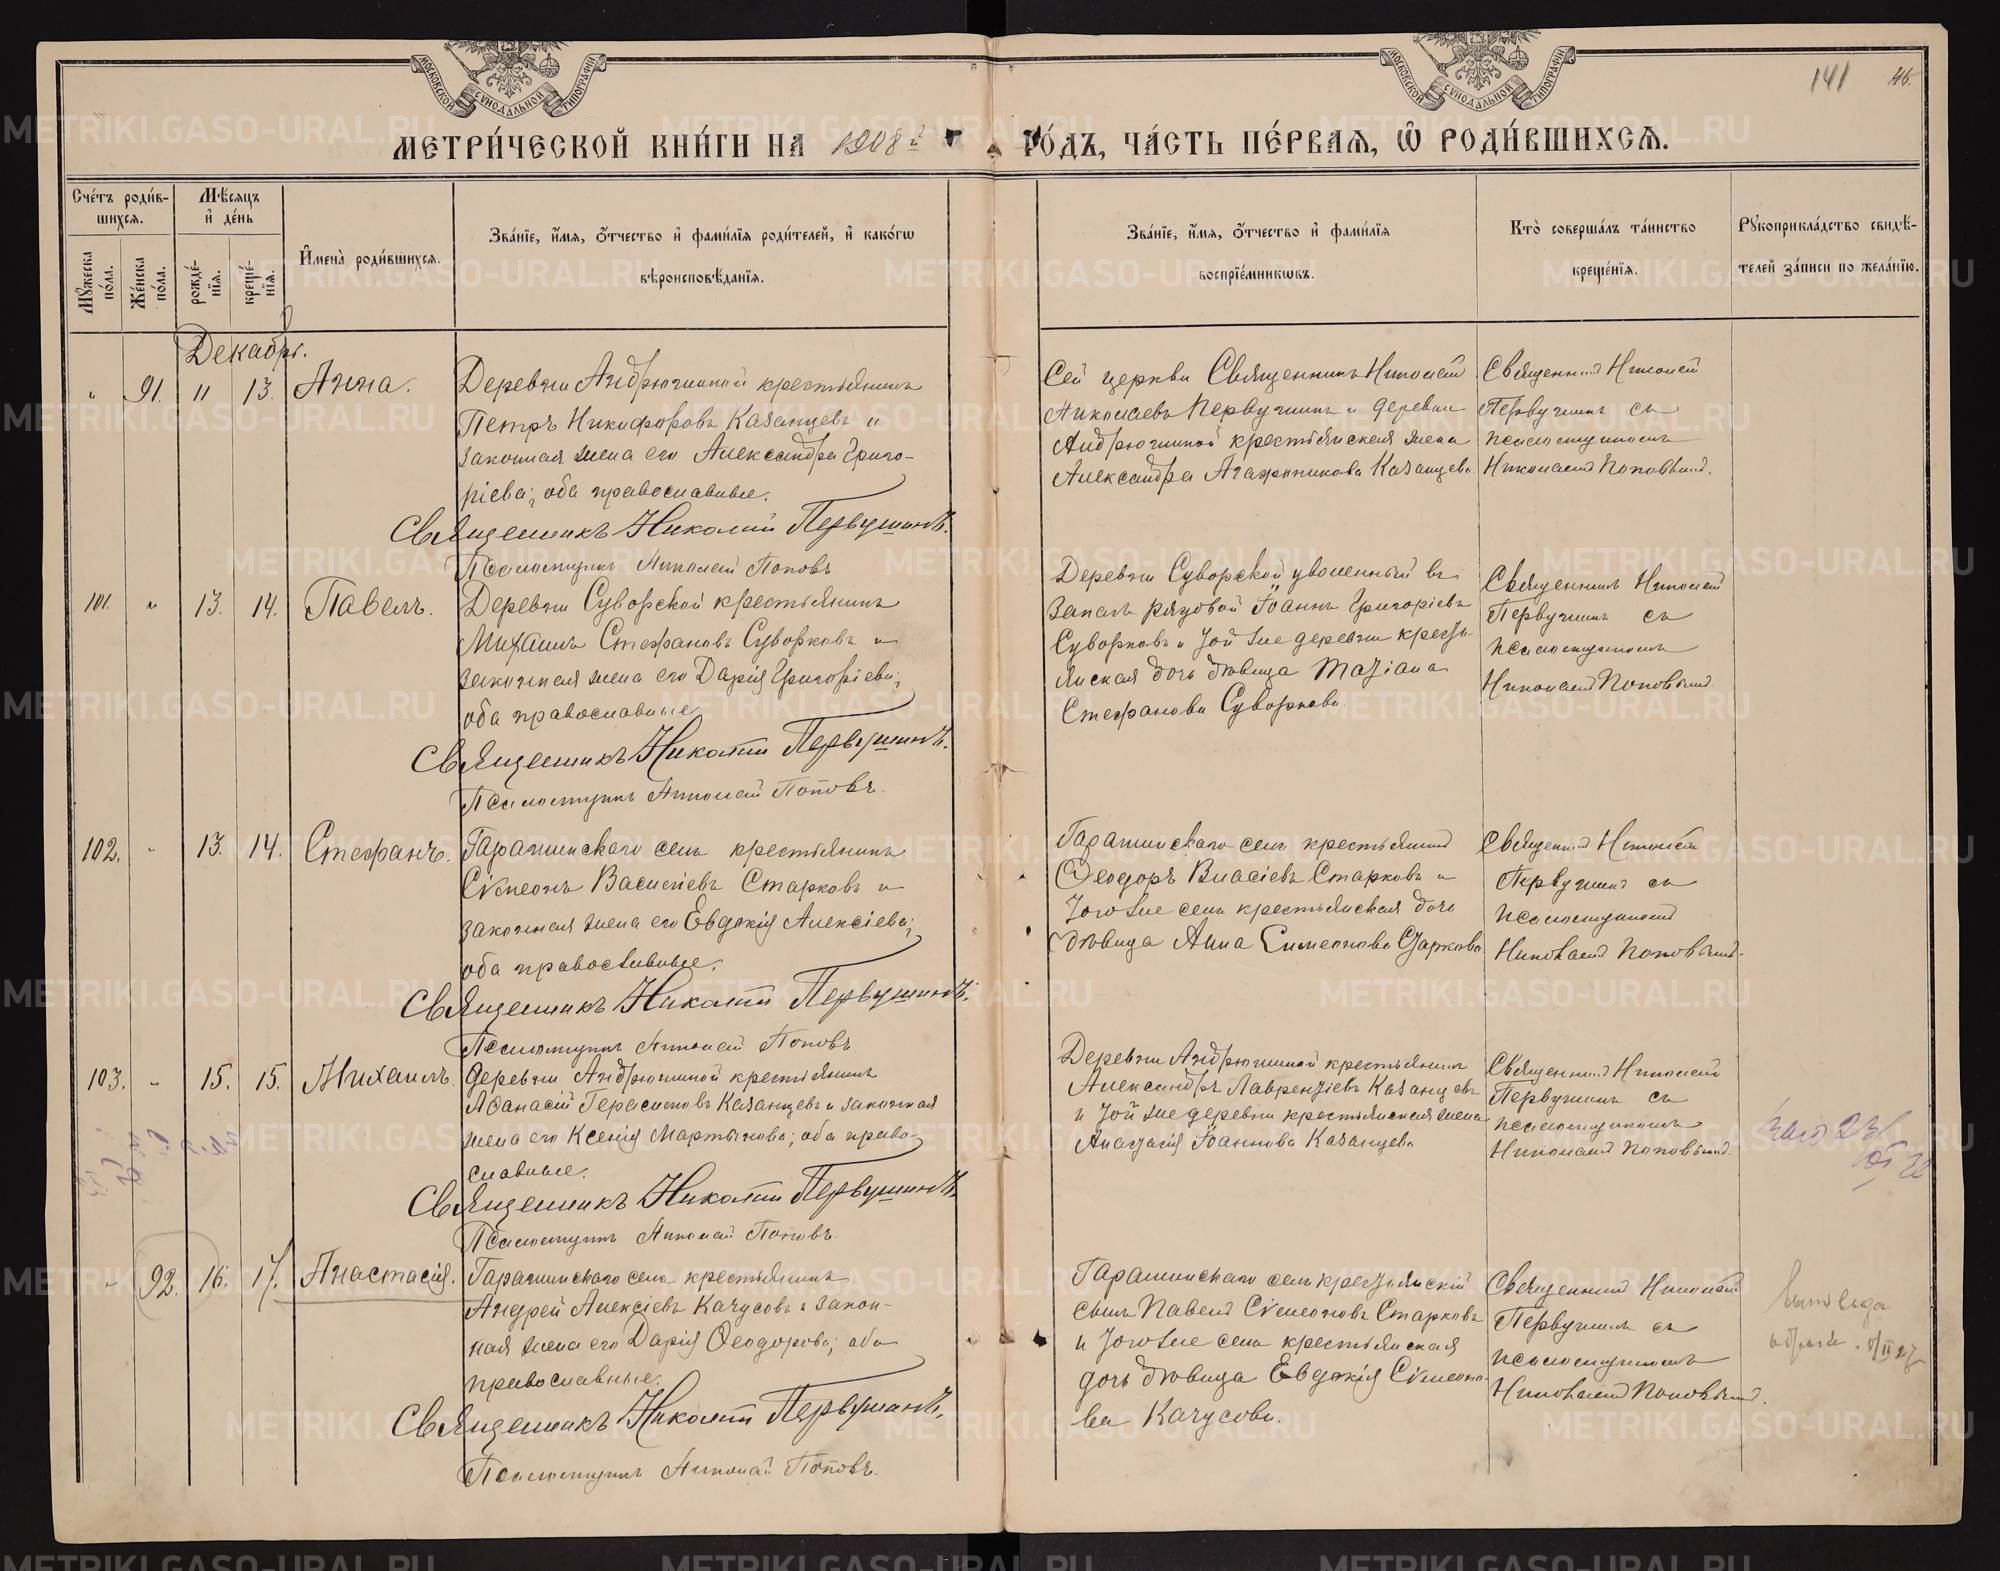 МОСКОВСКОЙ СУНОДАЛЬНОЙ ТИПОГРАФІИ
МОСКОВСКОЙ СУНОДАЛЬНОЙ ТИПОГРАФІИ
141 46.
МЕТРИ́ЧЕСКОЙ КНИ́ГИ НА 1908й
ГО́ДЪ, ЧА́СТЬ ПЕ́РВАѦ, Ѡ РОДИ́ВШИХСѦ.
Сче́тъ роди́вшихсѧ.
Мѣ́сѧцъ и҆ де́нь
И҆мена̀ роди́вшихсѧ.
Зва́нїе, и҆́мѧ, ѻ҆́тчество и҆ фами́лїѧ роди́телей, и҆ како́гѡ
вѣроисповѣ́данїѧ.
Зва́нїе, и҆́мѧ, ѻ҆́тчество и҆ фами́лїѧ
воспрїе́мникѡвъ.
Кто̀ соверша́лъ та́инство
креще́нїѧ.
Рꙋкоприкла́дство свидѣ́-
телей за́писи по жела́нїю.
Мꙋ́жеска по́ла.
Же́нска по́ла.
рожде́нїѧ.
креще́нїѧ.
Декабрь.
" 91. 11 13. Анна.
Деревни Андрюшиной крестьянинъ
Петръ Никифоровъ Казанцевъ и
законная жена его Александра Григо-
ріева; оба православные.
Священникъ Николай Первушинъ.
Псаломщикъ Николай Поповъ
Сей церкви Священникъ Николай
Николаевъ Первушинъ и деревни
Андрюшиной крестьянская жена
Александра Агафоникова Казанцева
Священникъ Николай
Первушинъ съ
псаломщикомъ
Николаемъ Поповымъ.
101. " 13. 14. Павелъ.
Деревни Суворской крестьянинъ
Михаилъ Стефановъ Суворковъ и
законная жена его Дарія Григоріева,
оба православные
Священникъ Николай Первушинъ.
Псаломщикъ Николай Поповъ.
Деревни Суворской уволенный въ
запасъ рядовой Іоаннъ Григоріевъ
Суворковъ и той же деревни кресть-
янская дочь дѣвица Татіана
Стефанова Суворкова.
Священникъ Николай
Первушинъ съ
псаломщикомъ
Николаемъ Поповымъ
102. " 13. 14. Стефанъ.
Гарашинскаго села крестьянинъ
Сѵмеонъ Василіевъ Старковъ и
законная жена его Евдокія Алексіева;
оба православные.
Священникъ Николай Первушинъ.
Псаломщикъ Николай Поповъ
Гарашинскаго села крестьянинъ
Ѳеодоръ Власіевъ Старковъ и
того же села крестьянская дочь
дѣвица Анна Симеонова Старкова
Священникъ Николай
Первушинъ съ
псаломщикомъ
Николаемъ Поповымъ.
103. " 15. 15. Михаилъ.
Деревни Андрюшиной крестьянинъ
Аѳанасій Герасимовъ Казанцевъ и законная
жена его Ксенія Мартынова; оба право-
славные.
Священникъ Николай Первушинъ.
Псаломщикъ Николай Поповъ.
Деревни Андрюшиной крестьянинъ
Александръ Лаврентіевъ Казанцевъ
и той же деревни крестьянская жена
Анастасія Іоаннова Казанцева
Священникъ Николай
Первушинъ съ
псаломщикомъ
Николаемъ Поповымъ.
" 92. 16. 17. Анастасія.
Гарашинскаго села крестьянинъ
Андрей Алексіевъ Качусовъ и закон-
ная жена его Дарія Ѳеодорова; оба
православные.
Священникъ Николай Первушинъ.
Псаломщикъ Николай Поповъ.
Гарашинскаго села крестьянскій
сынъ Павелъ Сѵмеоновъ Старковъ
и того же села крестьянская
дочь дѣвица Евдокія Сѵмеоно-
ва Качусова.
Священникъ Николай
Первушинъ съ
псаломщикомъ
Николаемъ Поповымъ.
METRIKI.GASO-URAL.RU